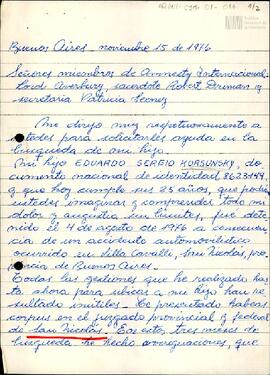 1/2
Buenos Aires, noviembre 15 de 1976
Señores miembros de Amnesty Internacional
Lord Averbury, sacerdote Robert Driman y
secretaria Patricia Feeney
Me dirijo muy respetuosamente a
ustedes para solicitarles ayuda en la
búsqueda de mi hijo.
Mi hijo EDUARDO SERGIO KORSUNSKY, do-
cumento nacional de identidad 8623149
y que hoy cumple sus 25 años, que podrán
ustedes imaginar y comprender todo mi
dolor y angustia sin límites, fue de-
tenido el 4 de agosto de 1976 a consecuen-
cia de un accidente automovilístico
ocurrido en Villa Cavalli, San Nicolás, pro-
vincia de Buenos Aires.
Todas las gestiones que he realizado has-
ta ahora para ubicar a mi hijo han re-
sultado inútiles. He presentado habeas
corpus en el juzgado provincial y federal
de San Nicolás. En estos tres meses de
búsqueda he hecho averiguaciones, que